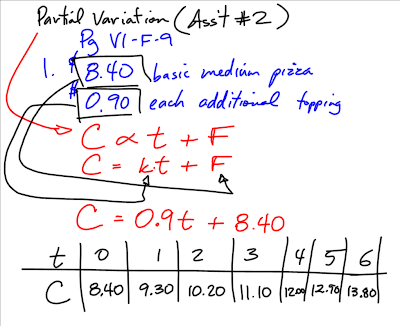 Partial Variation (Ass't #2)
Pg VI-F-9
1. $8.40 basic medium pizza
$0.90 each additional topping
C ∝ t + F
C = kt + F
C = 0.9t + 8.40
t 0 1 2 3 4 5 6
C 8.40 9.30 10.20 11.10 12.00 12.90 13.80